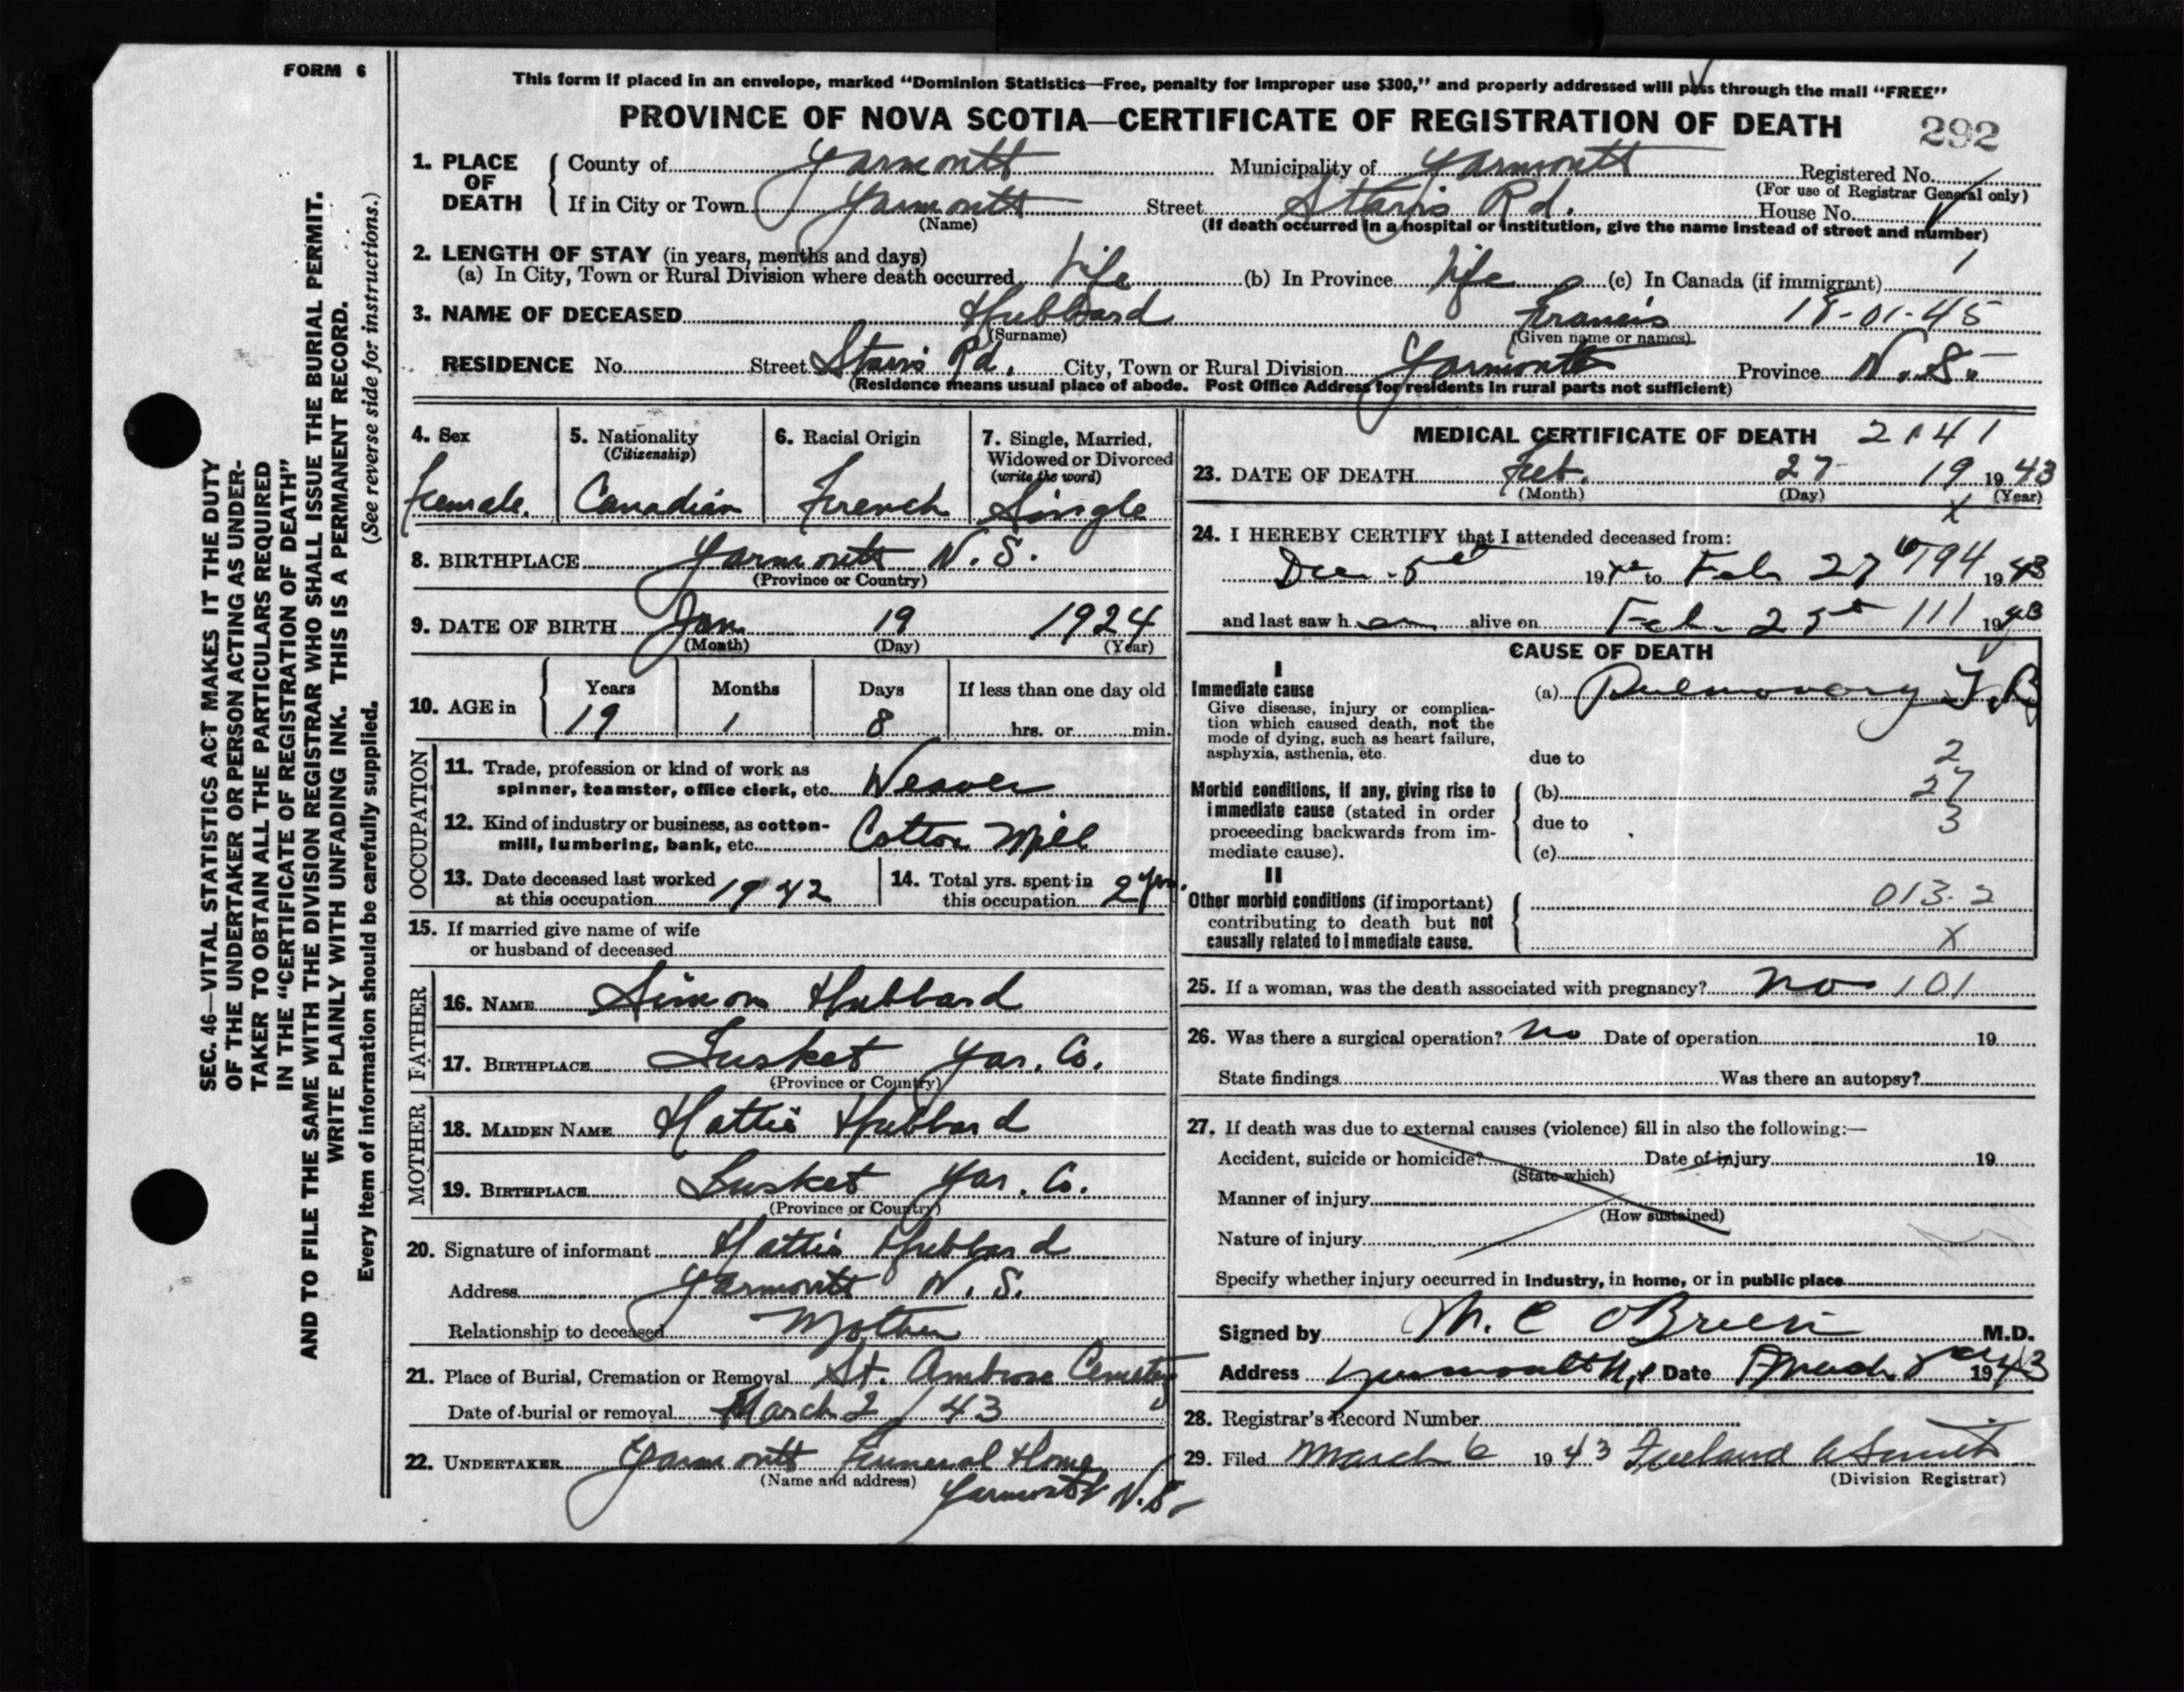 FORM 6
This form if placed in an envelope, marked "Dominion Statistics—Free, penalty for improper use $300," and properly addressed will pass through the mail "FREE"
PROVINCE OF NOVA SCOTIA—CERTIFICATE OF REGISTRATION OF DEATH 292
1. PLACE OF DEATH County of Yarmouth Municipality of Yarmouth Registered No.
(For use of Registrar General only)
If in City or Town Yarmouth Street Starrs Rd. House No.
(Name) (If death occurred in a hospital or institution, give the name instead of street and number)
2. LENGTH OF STAY (in years, months and days)
(a) In City, Town or Rural Division where death occurred Life (b) In Province life (c) In Canada (if immigrant)
3. NAME OF DECEASED Hubbard Francis 18-01-45
(Surname) (Given name or names)
RESIDENCE No. Street Starrs Rd. City, Town or Rural Division Yarmouth Province N.S.
(Residence means usual place of abode. Post Office Address for residents in rural parts not sufficient)
4. Sex Female.
5. Nationality (Citizenship) Canadian
6. Racial Origin French
7. Single, Married, Widowed or Divorced (write the word) Single
8. BIRTHPLACE Yarmouth N.S.
(Province or Country)
9. DATE OF BIRTH Jan 19 1924
(Month) (Day) (Year)
10. AGE in Years Months Days If less than one day old
19 1 8 hrs. or min.
OCCUPATION
11. Trade, profession or kind of work as
spinner, teamster, office clerk, etc. Weaver
12. Kind of industry or business, as cotton-
mill, lumbering, bank, etc. Cotton Mill
13. Date deceased last worked
at this occupation 1942
14. Total yrs. spent in
this occupation 2 yrs.
15. If married give name of wife
or husband of deceased
FATHER
16. NAME Simon Hubbard
17. BIRTHPLACE Tusket Yar. Co.
(Province or Country)
MOTHER
18. MAIDEN NAME Hattie Hubbard
19. BIRTHPLACE Tusket Yar. Co.
(Province or Country)
20. Signature of informant Hattie Hubbard
Address Yarmouth N.S.
Relationship to deceased Mother
21. Place of Burial, Cremation or Removal St. Ambrose Cemetery
Date of burial or removal March 2 / 43
22. UNDERTAKER Yarmouth Funeral Home
(Name and address) Yarmouth N.S.
MEDICAL CERTIFICATE OF DEATH 2141
23. DATE OF DEATH Feb. 27 19 1943
(Month) (Day) (Year)
X
24. I HEREBY CERTIFY that I attended deceased from:
Dec. 5 19 to Feb 27 194 1943
and last saw h er alive on Feb. 25 111 1943
CAUSE OF DEATH
I
Immediate cause
Give disease, injury or complica-
tion which caused death, not the
mode of dying, such as heart failure,
asphyxia, asthenia, etc.
(a) Pulmonary T.B
due to 2
Morbid conditions, if any, giving rise to
immediate cause (stated in order
proceeding backwards from im-
mediate cause).
(b) 27
due to 3
(c)
II
Other morbid conditions (if important)
contributing to death but not
causally related to immediate cause.
013.2
X
25. If a woman, was the death associated with pregnancy? no 101
26. Was there a surgical operation? no Date of operation 19
State findings Was there an autopsy?
27. If death was due to external causes (violence) fill in also the following:—
Accident, suicide or homicide? Date of injury 19
(State which)
Manner of injury
(How sustained)
Nature of injury
Specify whether injury occurred in Industry, in home, or in public place
Signed by M. C O'Brien M.D.
Address Yarmouth N.S Date March 1943
28. Registrar's Record Number
29. Filed March 6 1943 Freeland Smith
(Division Registrar)
SEC. 46—VITAL STATISTICS ACT MAKES IT THE DUTY
OF THE UNDERTAKER OR PERSON ACTING AS UNDER-
TAKER TO OBTAIN ALL THE PARTICULARS REQUIRED
IN THE "CERTIFICATE OF REGISTRATION OF DEATH"
AND TO FILE THE SAME WITH THE DIVISION REGISTRAR WHO SHALL ISSUE THE BURIAL PERMIT.
WRITE PLAINLY WITH UNFADING INK. THIS IS A PERMANENT RECORD.
Every item of information should be carefully supplied. (See reverse side for instructions.)